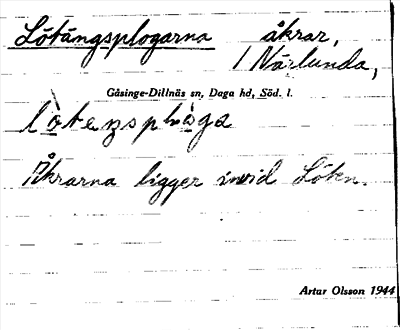 Lötängsplogarna åkrar,
/ Närlunda,
Gåsinge-Dillnäs sn, Daga hd, Söd. l.
Åkrarna ligger invid Löten.
Artar Olsson 1944